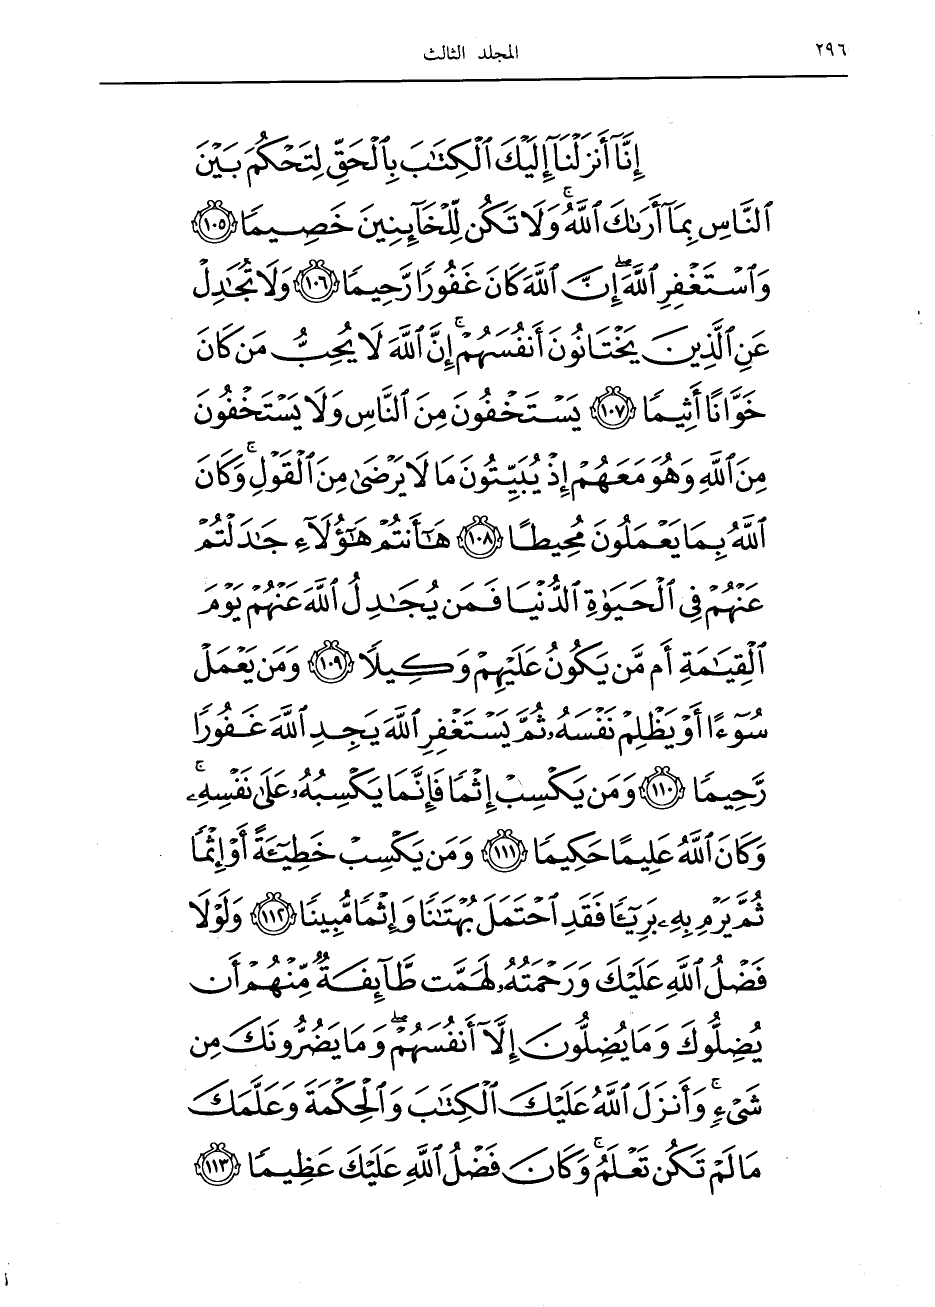 ٢٩٦
المجلد الثالث
إِنَّآ أَنزَلْنَآ إِلَيْكَ ٱلْكِتَٰبَ بِٱلْحَقِّ لِتَحْكُمَ بَيْنَ
ٱلنَّاسِ بِمَآ أَرَىٰكَ ٱللَّهُ ۚ وَلَا تَكُن لِّلْخَآئِنِينَ خَصِيمًا ١٠٥
وَٱسْتَغْفِرِ ٱللَّهَ ۖ إِنَّ ٱللَّهَ كَانَ غَفُورًا رَّحِيمًا ١٠٦ وَلَا تُجَٰدِلْ
عَنِ ٱلَّذِينَ يَخْتَانُونَ أَنفُسَهُمْ ۚ إِنَّ ٱللَّهَ لَا يُحِبُّ مَن كَانَ
خَوَّانًا أَثِيمًا ١٠٧ يَسْتَخْفُونَ مِنَ ٱلنَّاسِ وَلَا يَسْتَخْفُونَ
مِنَ ٱللَّهِ وَهُوَ مَعَهُمْ إِذْ يُبَيِّتُونَ مَا لَا يَرْضَىٰ مِنَ ٱلْقَوْلِ ۚ وَكَانَ
ٱللَّهُ بِمَا يَعْمَلُونَ مُحِيطًا ١٠٨ هَٰٓأَنتُمْ هَٰٓؤُلَآءِ جَٰدَلْتُمْ
عَنْهُمْ فِى ٱلْحَيَوٰةِ ٱلدُّنْيَا فَمَن يُجَٰدِلُ ٱللَّهَ عَنْهُمْ يَوْمَ
ٱلْقِيَٰمَةِ أَم مَّن يَكُونُ عَلَيْهِمْ وَكِيلًا ١٠٩ وَمَن يَعْمَلْ
سُوٓءًا أَوْ يَظْلِمْ نَفْسَهُۥ ثُمَّ يَسْتَغْفِرِ ٱللَّهَ يَجِدِ ٱللَّهَ غَفُورًا
رَّحِيمًا ١١٠ وَمَن يَكْسِبْ إِثْمًا فَإِنَّمَا يَكْسِبُهُۥ عَلَىٰ نَفْسِهِۦ ۚ
وَكَانَ ٱللَّهُ عَلِيمًا حَكِيمًا ١١١ وَمَن يَكْسِبْ خَطِيٓـَٔةً أَوْ إِثْمًا
ثُمَّ يَرْمِ بِهِۦ بَرِيٓـًٔا فَقَدِ ٱحْتَمَلَ بُهْتَٰنًا وَإِثْمًا مُّبِينًا ١١٢ وَلَوْلَا
فَضْلُ ٱللَّهِ عَلَيْكَ وَرَحْمَتُهُۥ لَهَمَّت طَّآئِفَةٌ مِّنْهُمْ أَن
يُضِلُّوكَ وَمَا يُضِلُّونَ إِلَّآ أَنفُسَهُمْ ۖ وَمَا يَضُرُّونَكَ مِن
شَىْءٍ ۚ وَأَنزَلَ ٱللَّهُ عَلَيْكَ ٱلْكِتَٰبَ وَٱلْحِكْمَةَ وَعَلَّمَكَ
مَا لَمْ تَكُن تَعْلَمُ ۚ وَكَانَ فَضْلُ ٱللَّهِ عَلَيْكَ عَظِيمًا ١١٣